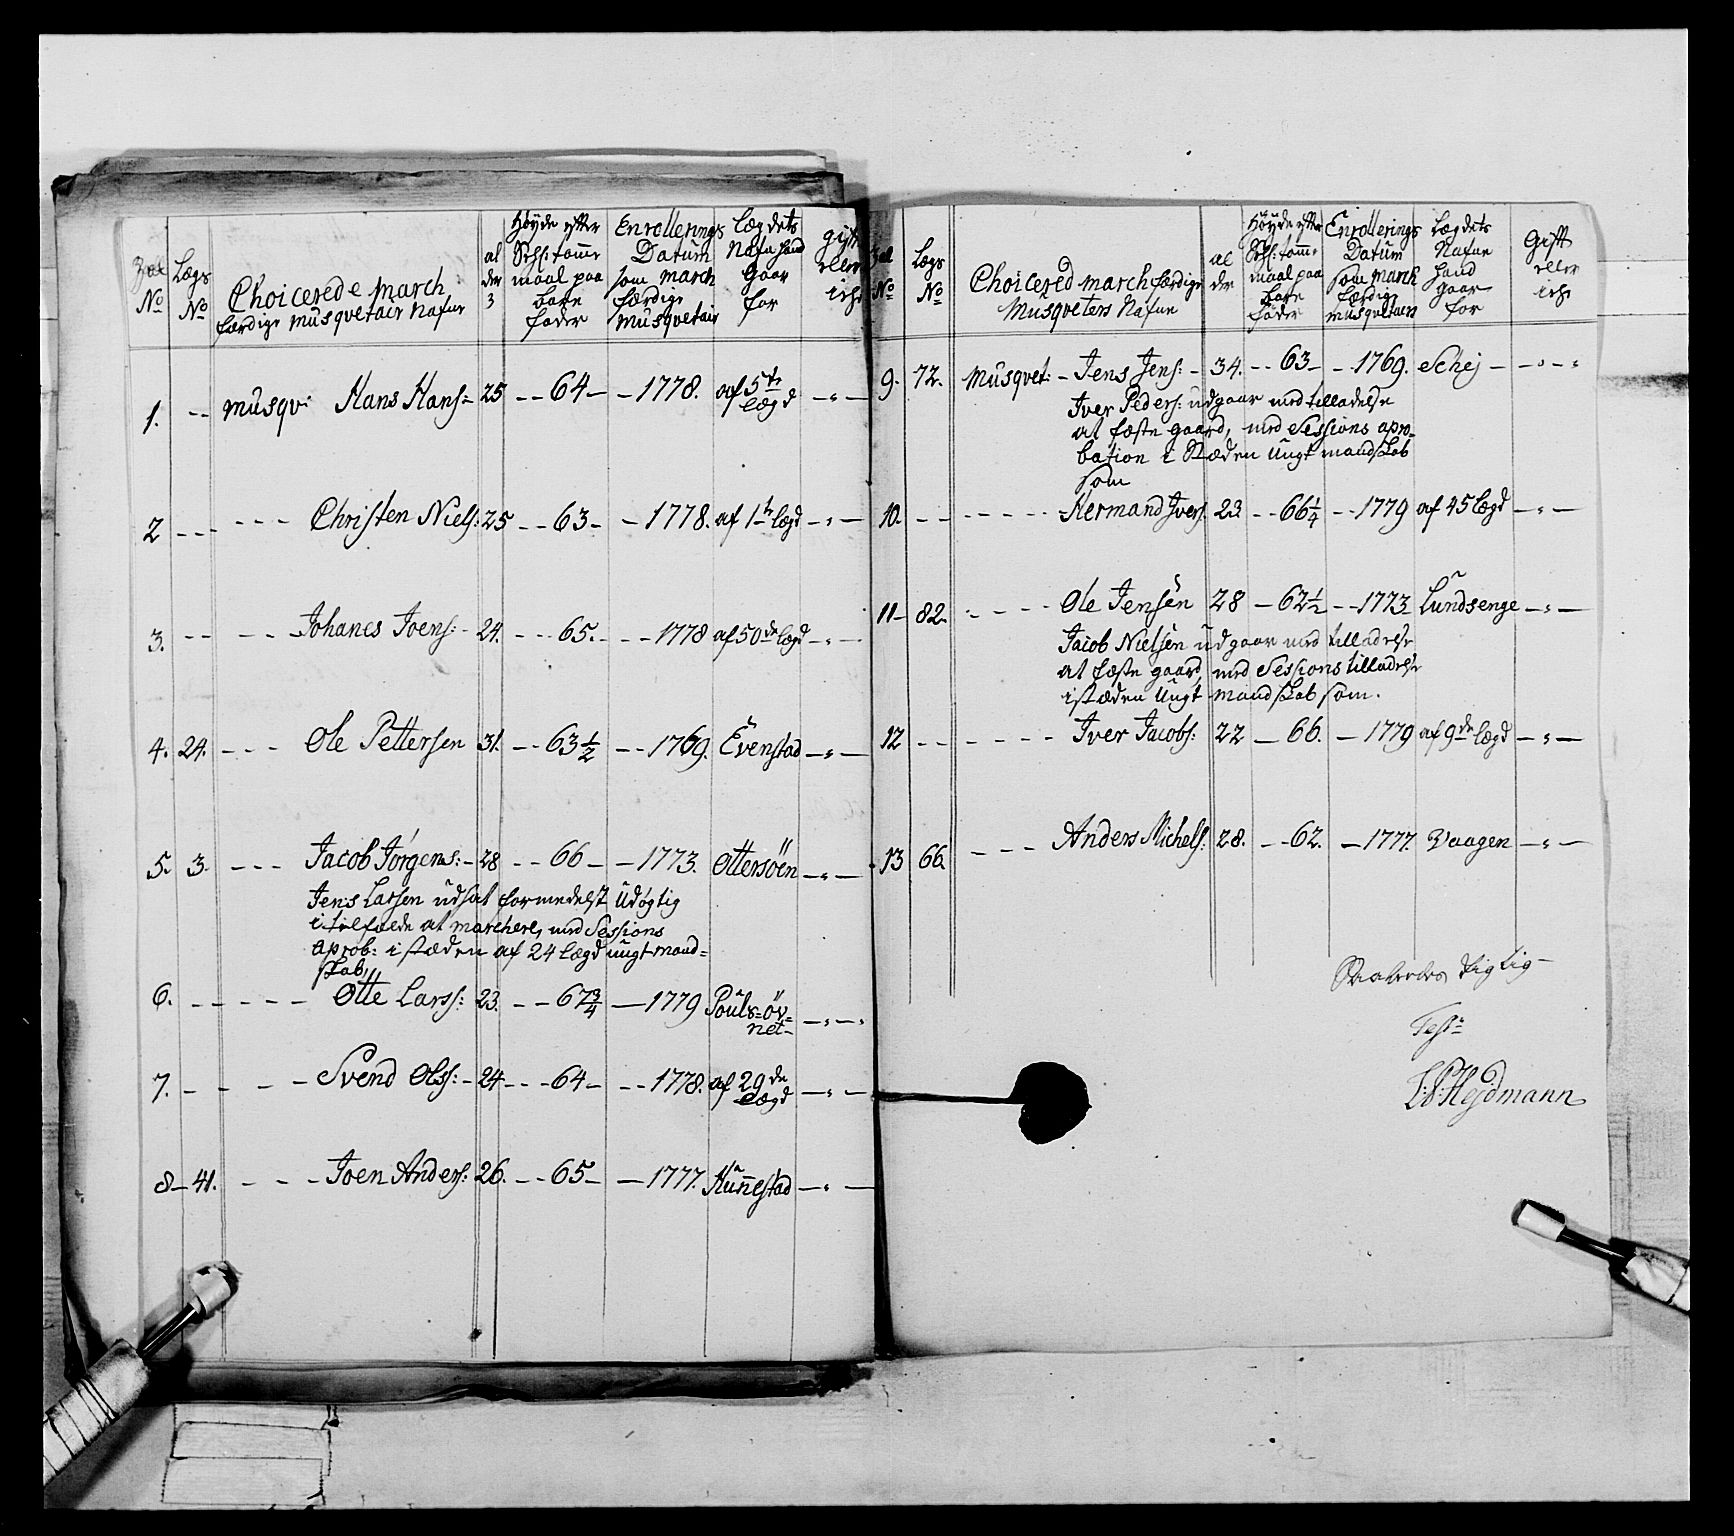 Zal No
Lægs No
Choicerede march
færdige musqvetair Nafne
al
der
3
Høyde efter
Sess: tomme
maal paa
bare
føder
Enrollerings
Datum
som march
færdige
musqvetair
Lægdets
Nafn hand
Gaar
for
gift
eller
icke
1. -- musqv: Hans Hans:- 25 -- 64 - - 1778. af 5te lægd -„-
2 --- ---- Christen Niels: 25 -- 63 - - 1778. af 1te lægd -„-
3. -- --- Johanes Joens:- 24. --- 65. -- - 1778 af 50de lægd -„-
4. 24. --- Ole Pettersen 31. -- 63½ -- 1769. Evenstad -„-
5. 3. --- Jacob Jørgens:- 28 -- 66 - - 1773. Ottersöen -„-
Jens Larsen udsat formedelst Udögtig
i tilfælde at marchere, med Sessions
aprob: i stæden af 24 Lægd ungt mand=
skab,
6. ----- Otte Larss: 23. -- 67¾ - 1779 Pouls=öv=
net- -„-
7. - - - - Svend Olss:- 24 --- 64 - -- 1778. af 29de
Lægd -„-
8 - 41. - - - Joen Anders: 26. -- 65 - - 1777. Kunestad -„-
Zal No
Lægs
No
Choicered march færdige
Musqveters Nafne
al
der
Høyde efter
Sess: tomme
maal paa
bare
føder
Enrollerings
Datum
som march
færdige
musqvetairs
Lægdets
Nafne
hand
gaar
for
Gift
eller
icke
9. 72. Musqvet: - Jens Jens: - 34. -- 63 - - 1769. Schej - -„-
Iver Peders: udgaar med tilladelse
at fæste gaard, med Sessions apro-
bation i Stæden Ungt mandskab
som
10. -- ----- Hermand Ivers. 23 -- 66¼ -- 1779 af 45 Lægd -„-
11 - 82. - --- Ole Jensen 28 - 62½ -- 1773 Lundsenge -„-
Jacob Nielsen udgaar med tilladelse
at fæste gaard, med Sessions tilladelse
i stæden Ungt mandskab som.
12 -- ---- Iver Jacobs: 22 - 66. - 1779 af 9de lægd -„-
13 66. --- Anders Michels: 28. -- 62. - 1777. Vaagen -„-
Rigtig
Test:
Hejdmann